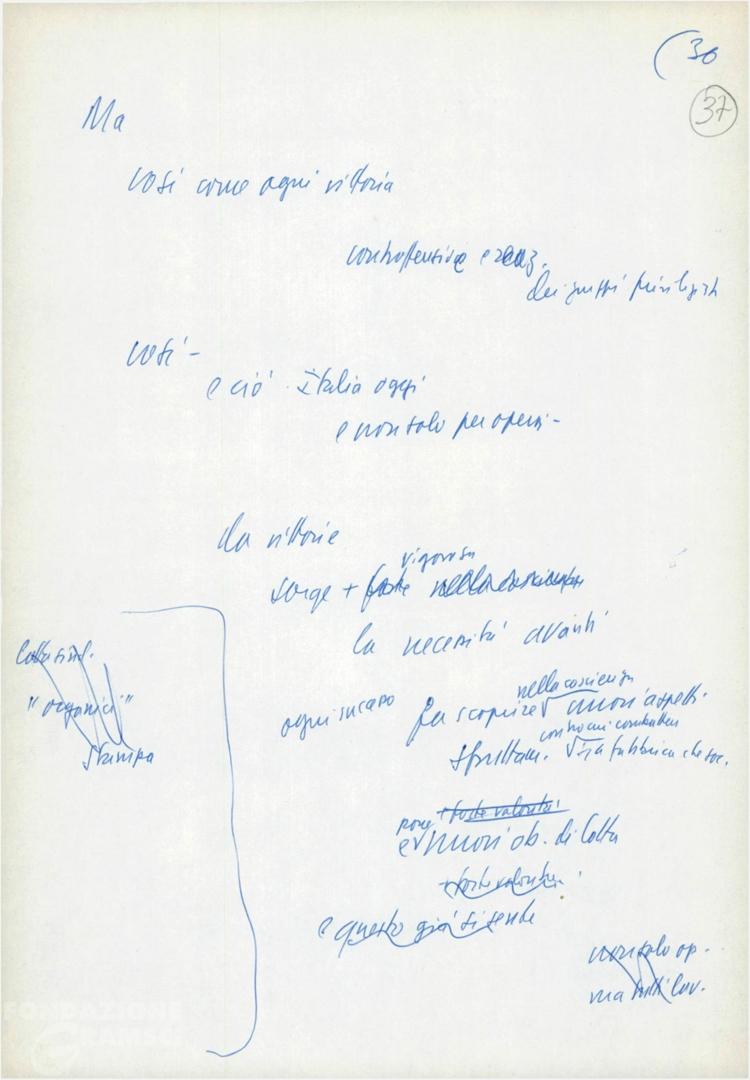 (30
37
Ma
così come ogni vittoria
controffensiva e reaz.
dei gruppi privilegiati
così -
e ciò Italia oggi
e non solo per operai -
da vittorie
vigorosa
sorge + forte nella coscienza
la necessità avanti
nella coscienza
ogni successo fa scoprire √ nuovi aspetti
contro cui combattere
sfruttam. √ in fabbrica che soc.
Lotta sind.
"organici"
Stampa
+ forte volontà
pone
e √ nuovi ob. di lotta
+ forte volontà
e questo già si sente
non solo op.
ma tutti lav.
FONDAZIONE
GRAMSCI